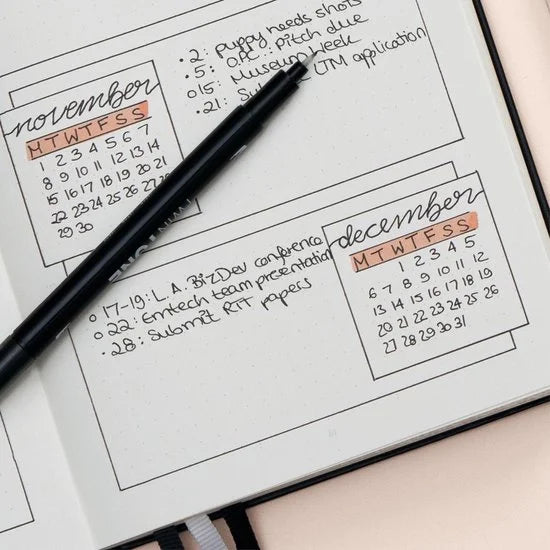 • 2: puppy needs shots
• 5: OPC: pitch due
o 15: Museum Week
• 21: application
november
M T W T F S S
1 2 3 4 5 6 7
8 9 10 11 12 13 14
15 16 17 18 19 20 21
22 23 24 25 26 27 28
29 30
december
M T W T F S S
1 2 3 4 5
6 7 8 9 10 11 12
13 14 15 16 17 18 19
20 21 22 23 24 25 26
27 28 29 30 31
o 17-19: L.A. BizDev conference
o 22: Emtech team presentation
• 28: Submit RIT papers
TWIN